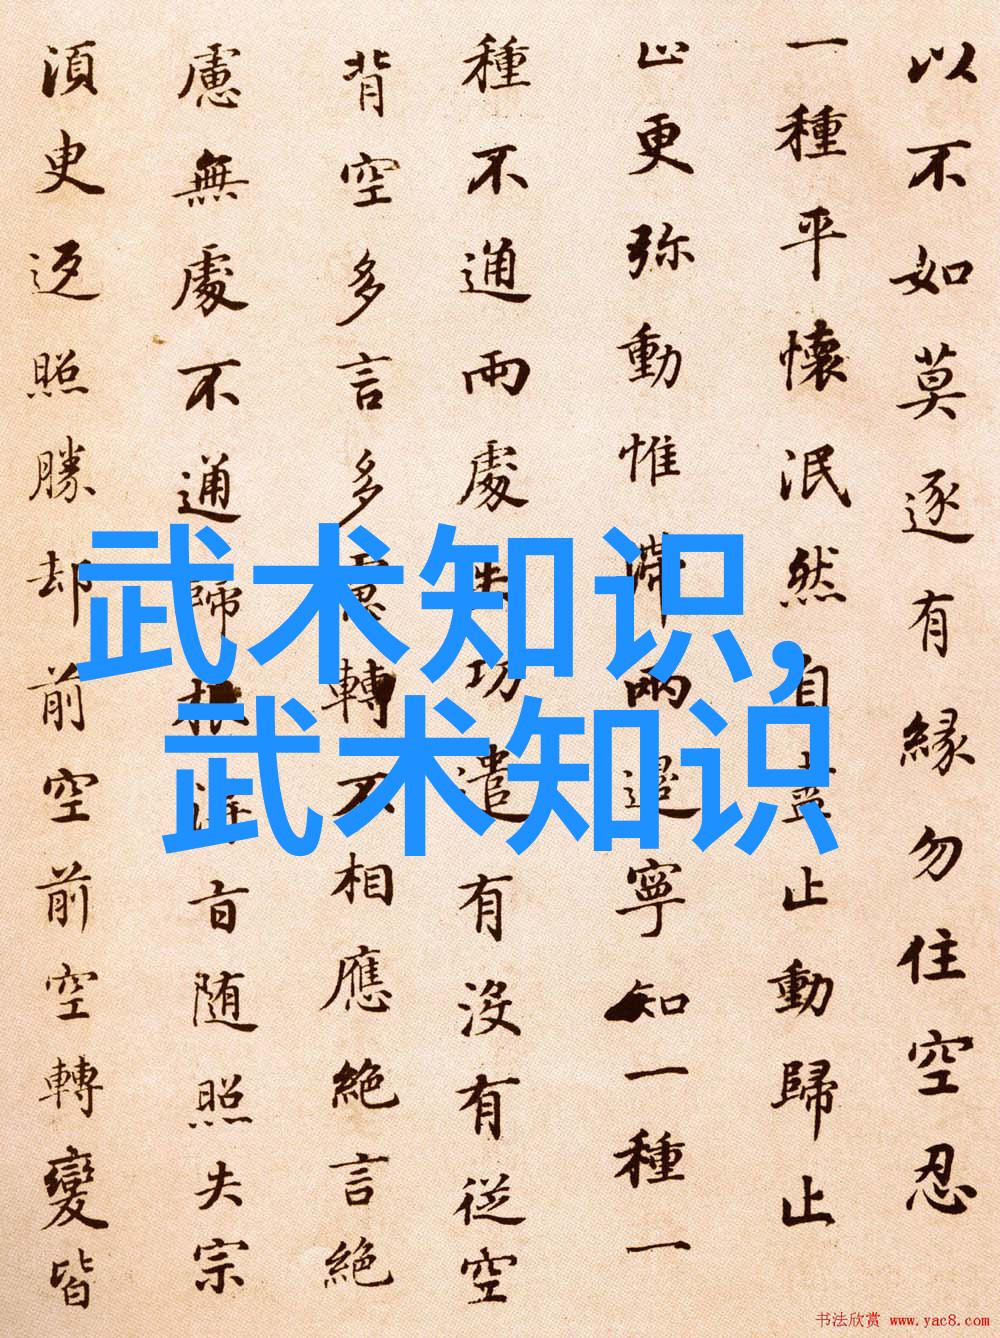 以不如莫逐有緣勿住空忍
一種平懷泯然自盡止動歸止
止更弥動惟滞兩邊寧知一種一
種不通兩處失功遣有没有從空
背空多言多慮轉不相應絶言絶
慮無處不通歸根得旨随照失宗
湏臾返照勝却前空前空轉變皆
武术知识,
武术知识
书法欣赏 www.yac8.com